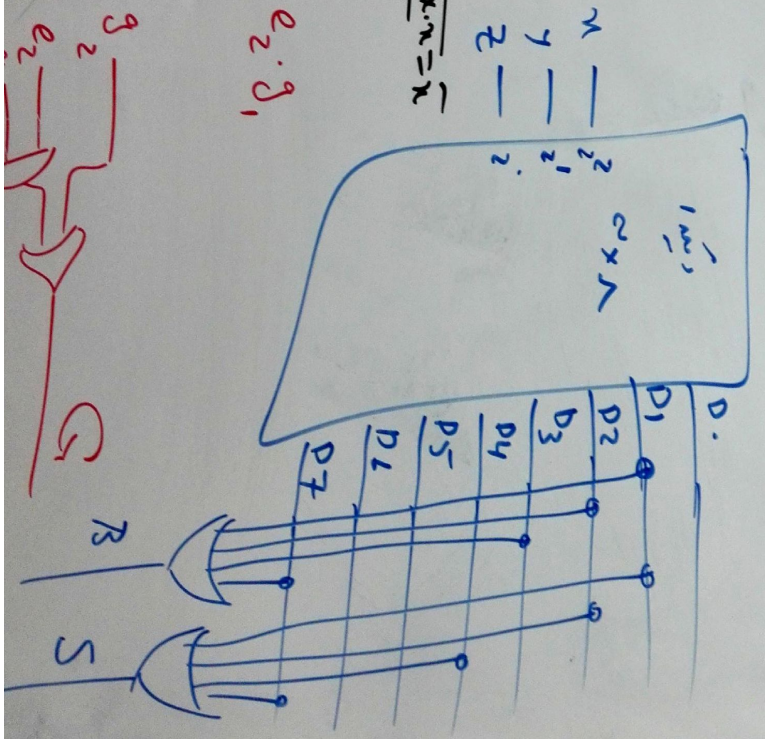 x
y
z
2²
2¹
2°
D0
D1
D2
D3
D4
D5
D6
D7
B
S
e₂·g₁
g₂
e₂
G